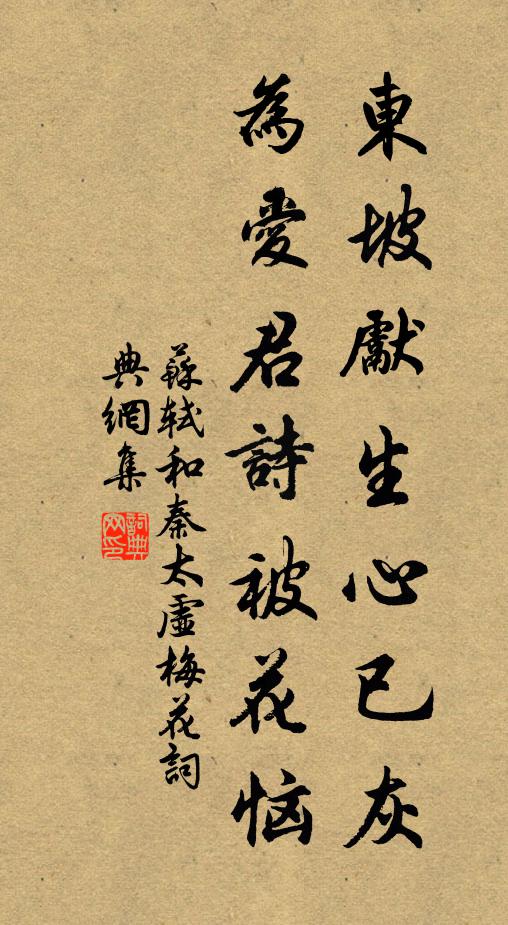 東坡獻生心已灰
為愛君詩被花恼
蘇軾和秦太虛梅花詞
典網集
詞典
网印